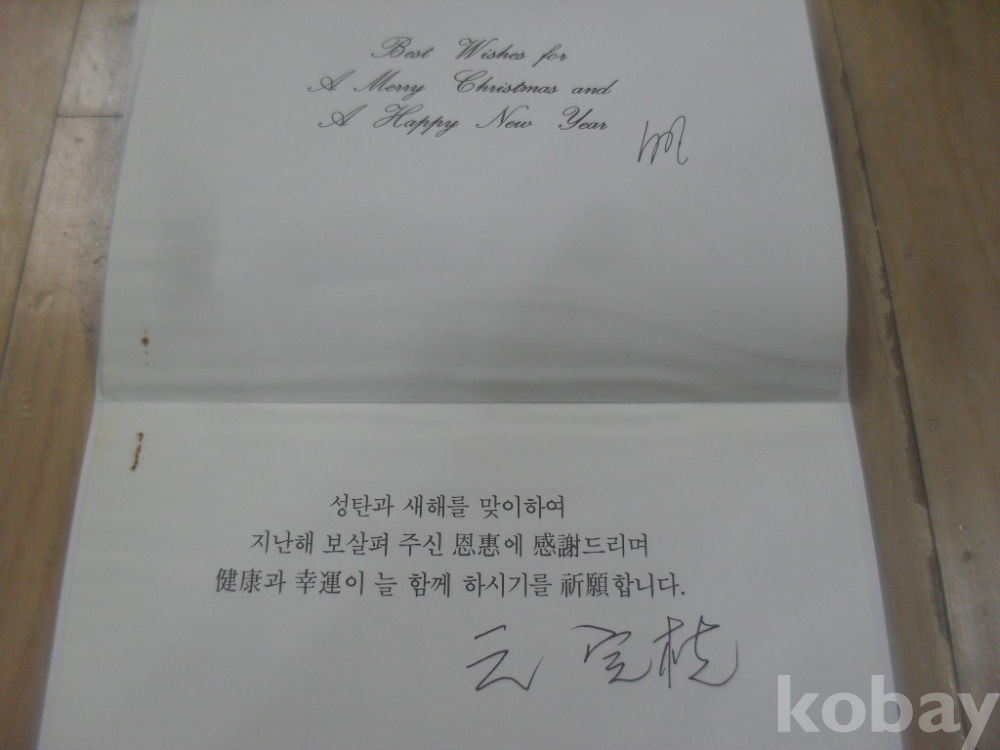 Best Wishes for
A Merry Christmas and
A Happy New Year
성탄과 새해를 맞이하여
지난해 보살펴 주신 恩惠에 感謝드리며
健康과 幸運이 늘 함께 하시기를 祈願합니다.
kobay